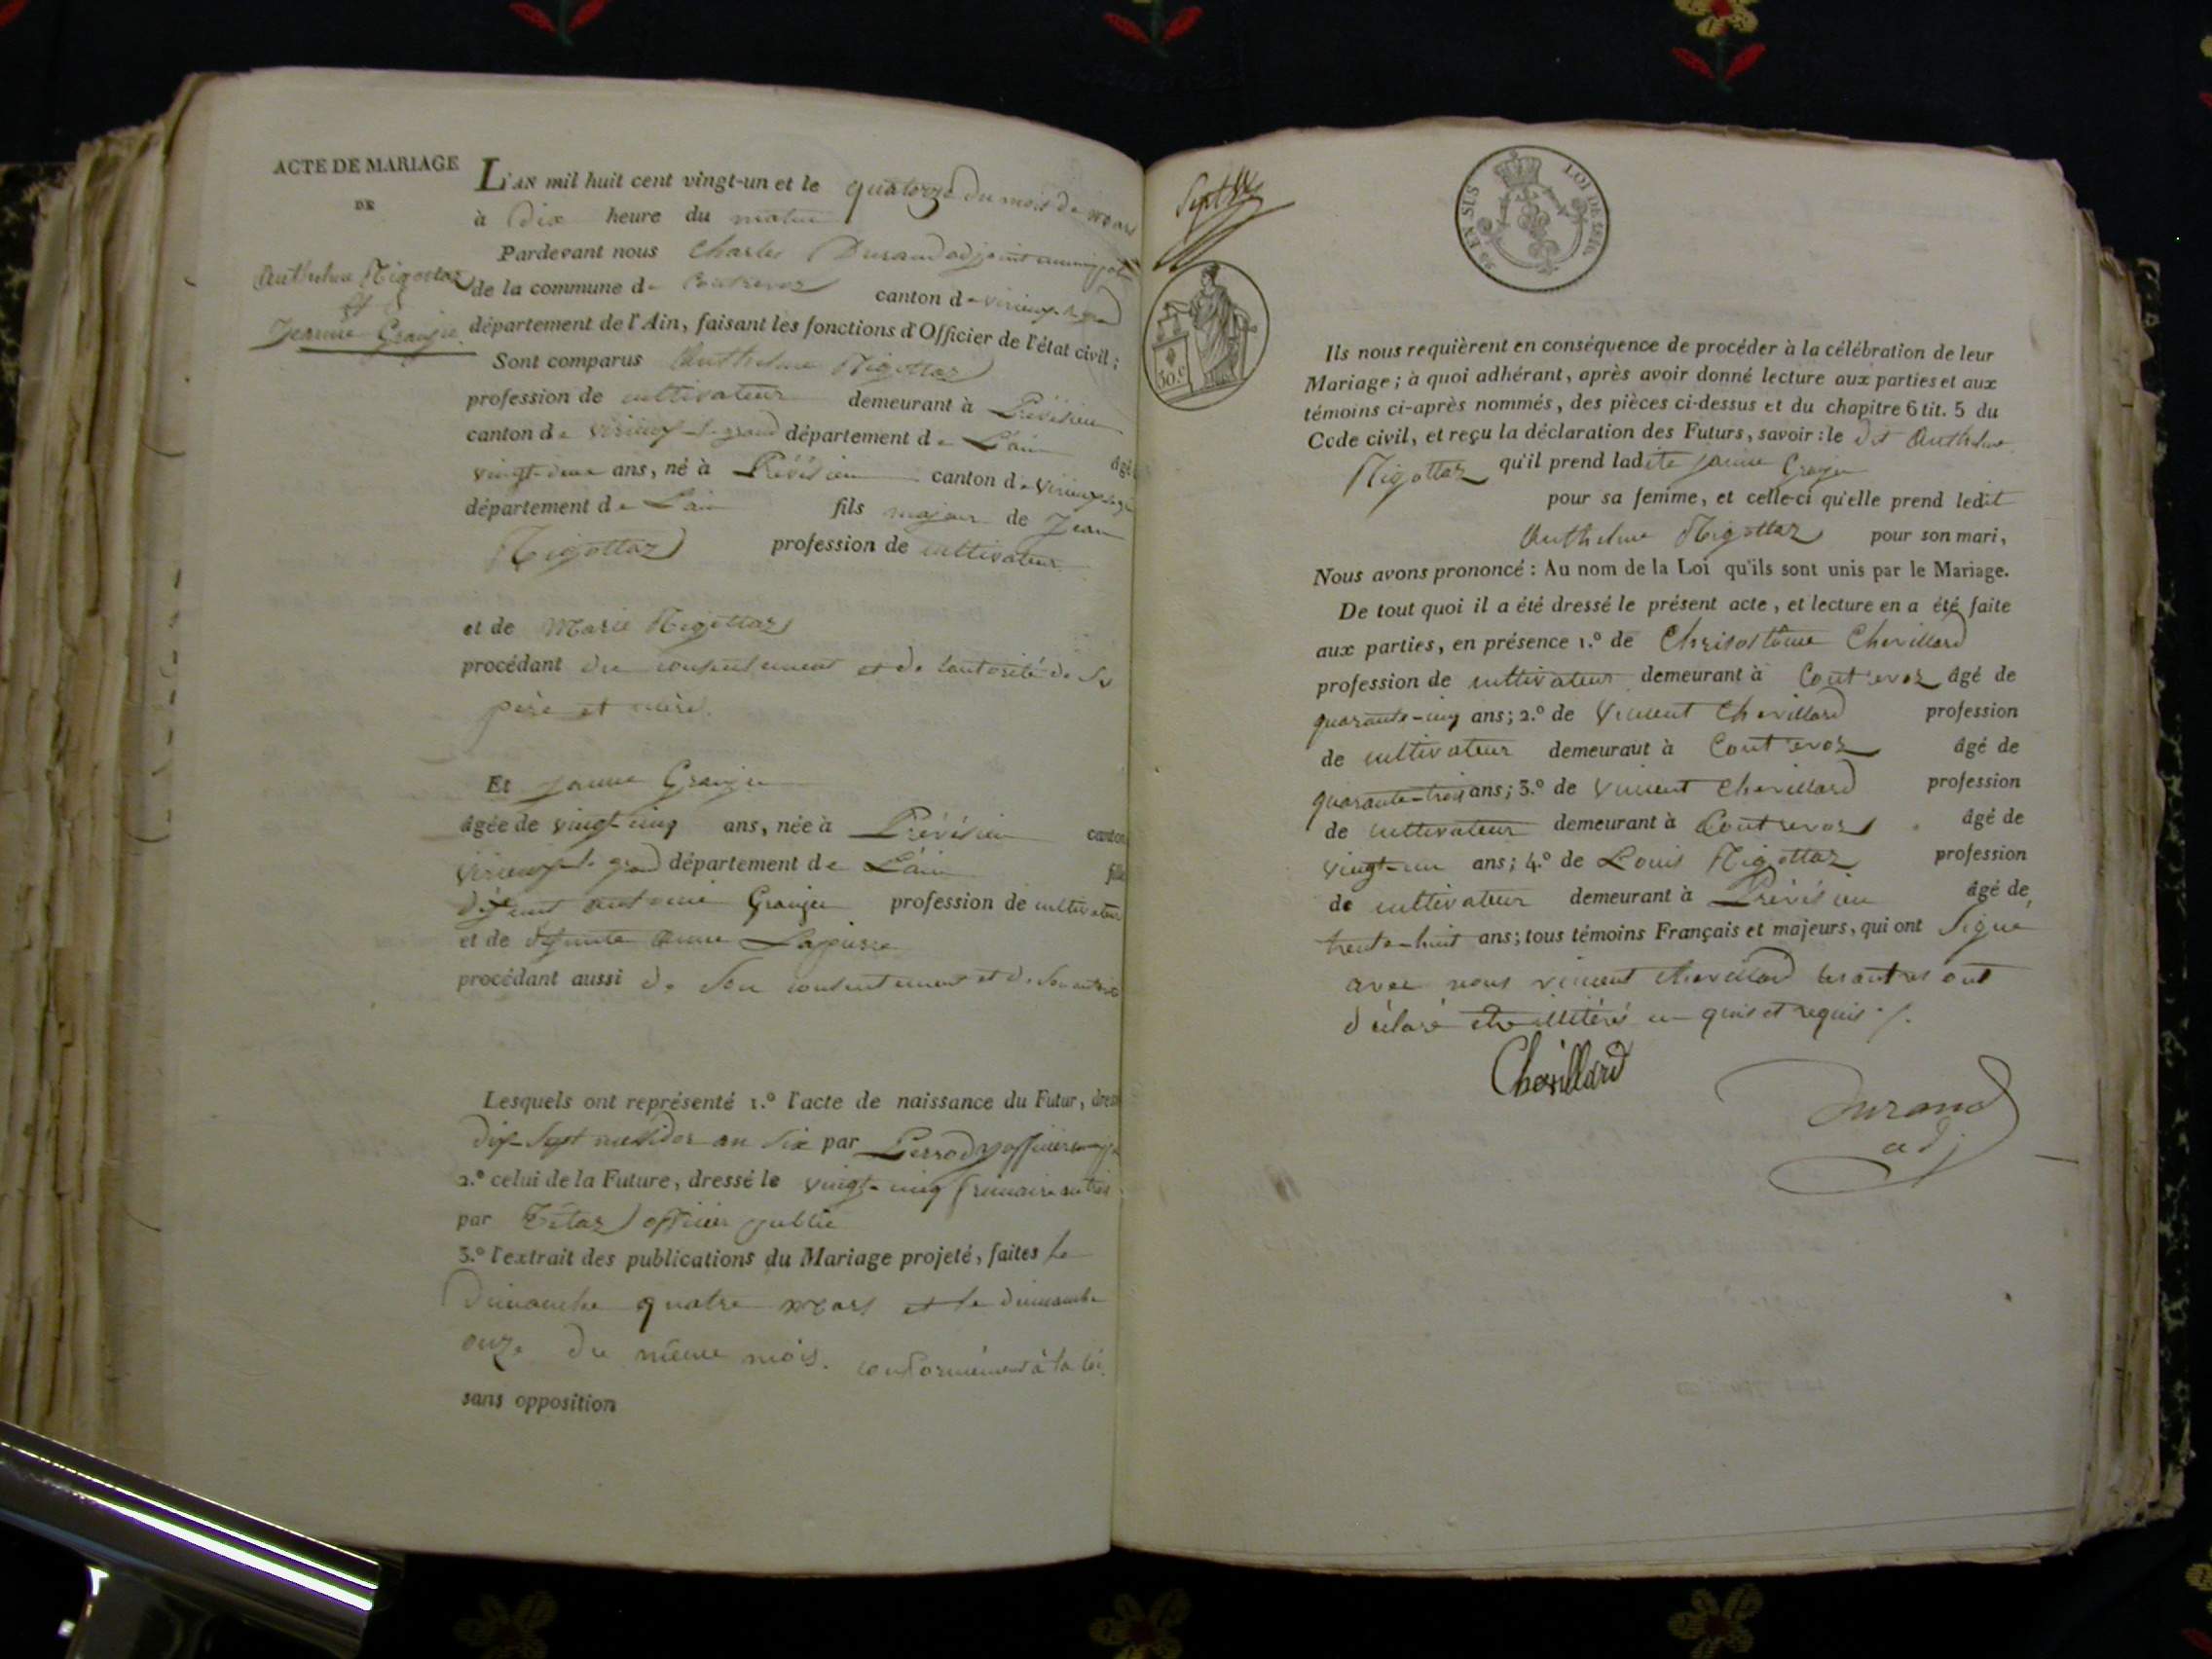 ACTE DE MARIAGE
DE
Anthelme Rigottaz
et
Jeanne Granju
L'AN mil huit cent vingt-un et le quatorze du mois de mars
à dix heure du matin
Pardevant nous Charles Durand adjoint
de la commune de Contrevoz canton de virieux-le-grand
département de l'Ain, faisant les fonctions d'Officier de l'état civil ;
Sont comparus Anthelme Rigottaz
profession de cultivateur demeurant à Prévésieu
canton de virieux-le-grand département de L'ain âgé
vingt-deux ans, né à Prévésieu canton de virieux
département de L'ain fils majeur de Jean
Rigottaz profession de cultivateur
et de Marie Rigottaz
procédant du consentement et de l'autorité de ses
père et mère.
Et janne Granju
âgée de vingt-cinq ans, née à Prévésieu canton
virieux-le-grand département de L'ain fille
défunt antoine Granju profession de cultivateur
et de défunte anne Lapierre
procédant aussi de son consentement et de son autorité
Lesquels ont représenté 1.º l'acte de naissance du Futur, dressé
dix-sept messidor an six par officier
2.º celui de la Future, dressé le vingt-cinq frimaire an trois
par officier public
3.º l'extrait des publications du Mariage projeté, faites le
dimanche quatre mars et le dimanche
onze du même mois. conformément à la loi
sans opposition
Sept
30.c
EN SUS
LOI DE 1816
Ils nous requièrent en conséquence de procéder à la célébration de leur
Mariage ; à quoi adhérant, après avoir donné lecture aux parties et aux
témoins ci-après nommés, des pièces ci-dessus et du chapitre 6 tit. 5 du
Code civil, et reçu la déclaration des Futurs, savoir : le dit Anthelme
Rigottaz qu'il prend ladite janne Granju
pour sa femme, et celle-ci qu'elle prend ledit
Anthelme Rigottaz pour son mari,
Nous avons prononcé : Au nom de la Loi qu'ils sont unis par le Mariage.
De tout quoi il a été dressé le présent acte, et lecture en a été faite
aux parties, en présence 1.º de Chrisostôme Chevillard
profession de cultivateur demeurant à Contrevoz âgé de
quarante-cinq ans ; 2.º de Vincent Chevillard profession
de cultivateur demeuraut à Contrevoz âgé de
quarante-trois ans ; 3.º de Vincent Chevillard profession
de cultivateur demeurant à Contrevoz âgé de
vingt-un ans ; 4.º de Louis Rigottaz profession
de cultivateur demeurant à Prévésieu âgé de
trente-huit ans ; tous témoins Français et majeurs, qui ont signé
avec nous vincent chevillard les autres ont
déclaré être illitérés enquis et requis ./.
Chevillard
Durand
adj